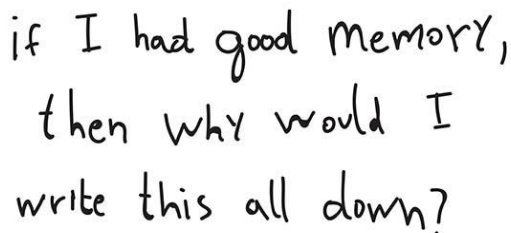 if I had good memory,
then why would I
write this all down?